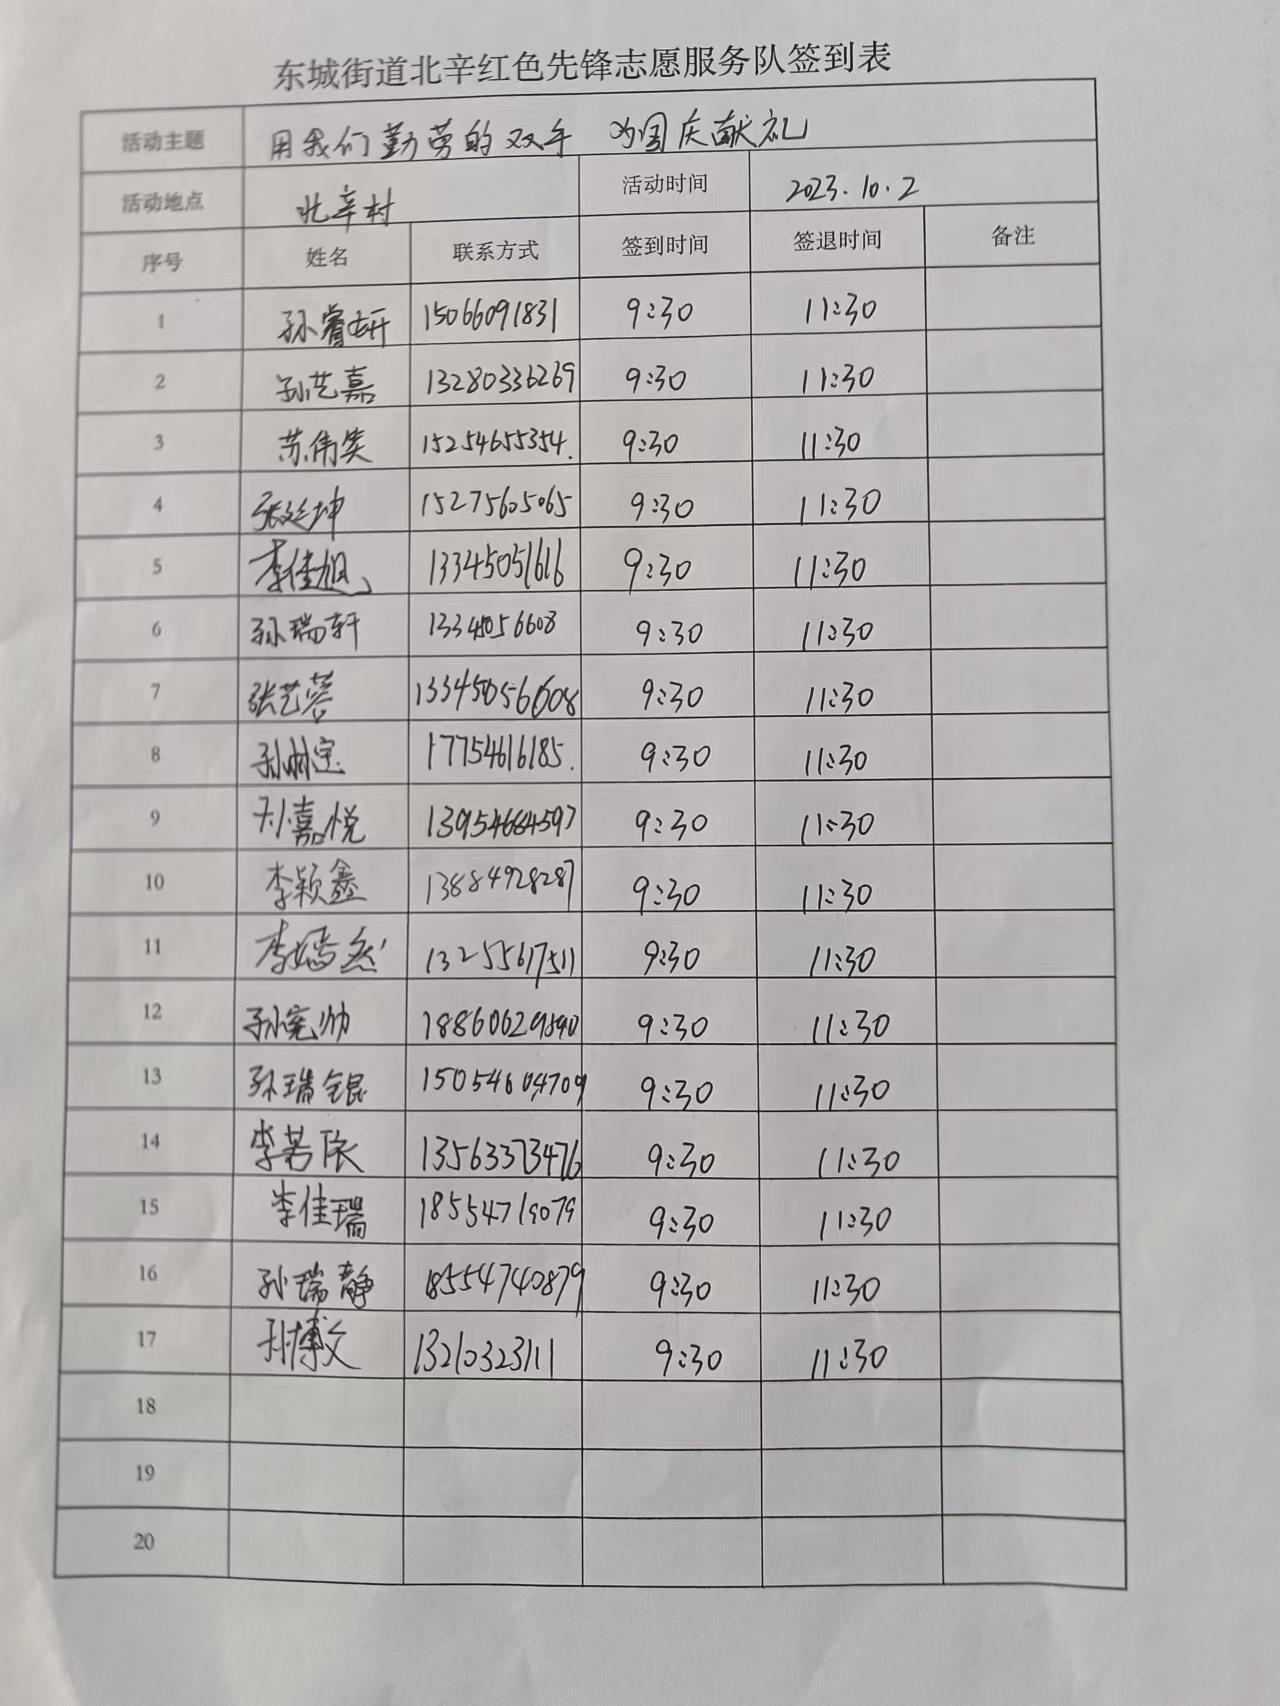 东城街道北辛红色先锋志愿服务队签到表
活动主题 用我们勤劳的双手 为国庆献礼
活动地点 北辛村 活动时间 2023.10.2
序号 姓名 联系方式 签到时间 签退时间 备注
1 孙睿妍 15066091831 9:30 11:30
2 孙艺嘉 13280336269 9:30 11:30
3 苏伟笑 15254655354. 9:30 11:30
4 张延坤 15275605065 9:30 11:30
5 李佳旭 13345051616 9:30 11:30
6 孙瑞轩 13345056608 9:30 11:30
7 张艺蓉 13345056608 9:30 11:30
8 17754616185. 9:30 11:30
9 孙嘉悦 13954684597 9:30 11:30
10 李颖鑫 13884928287 9:30 11:30
11 李嫣然 13255617511 9:30 11:30
12 孙宪帅 9:30 11:30
13 孙瑞锟 15054604709 9:30 11:30
14 李若依 13563373476 9:30 11:30
15 李佳瑞 18554719079 9:30 11:30
16 孙瑞静 18554740879 9:30 11:30
17 孙博文 13210323111 9:30 11:30
18
19
20